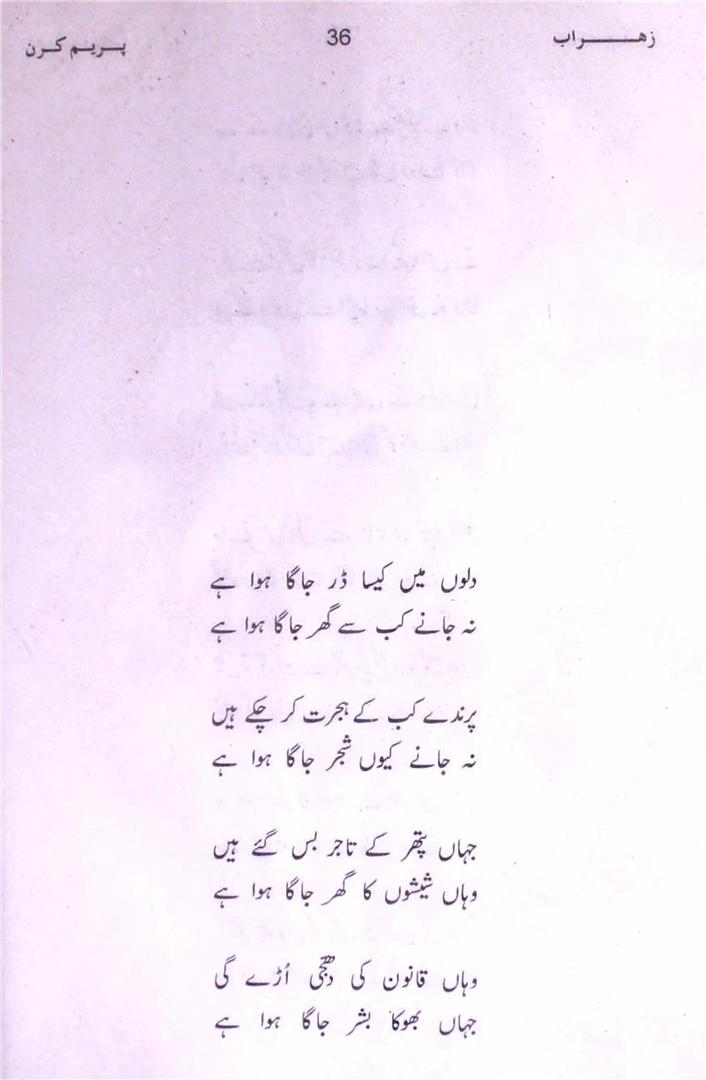 زهـــــراب 36 پـریـم کـرن
دلوں میں کیسا ڈر جاگا ہوا ہے
نہ جانے کب سے گھر جاگا ہوا ہے
پرندے کب کے ہجرت کر چکے ہیں
نہ جانے کیوں شجر جاگا ہوا ہے
جہاں پتھر کے تاجر بس گئے ہیں
وہاں شیشوں کا گھر جاگا ہوا ہے
وہاں قانون کی دھجّی اُڑے گی
جہاں بھوکا بشر جاگا ہوا ہے